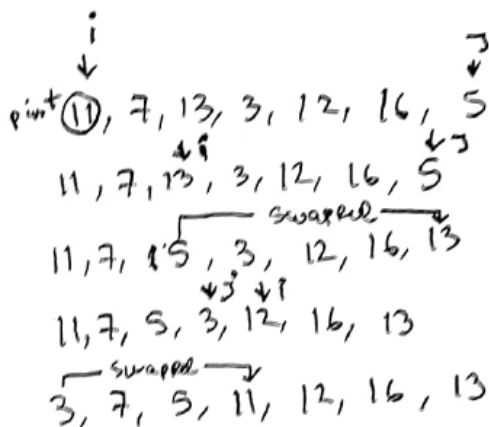 i
j
pivot 11, 7, 13, 3, 12, 16, 5
i j
11, 7, 13, 3, 12, 16, 5
swapped
11, 7, 5, 3, 12, 16, 13
j i
11, 7, 5, 3, 12, 16, 13
swapped
3, 7, 5, 11, 12, 16, 13